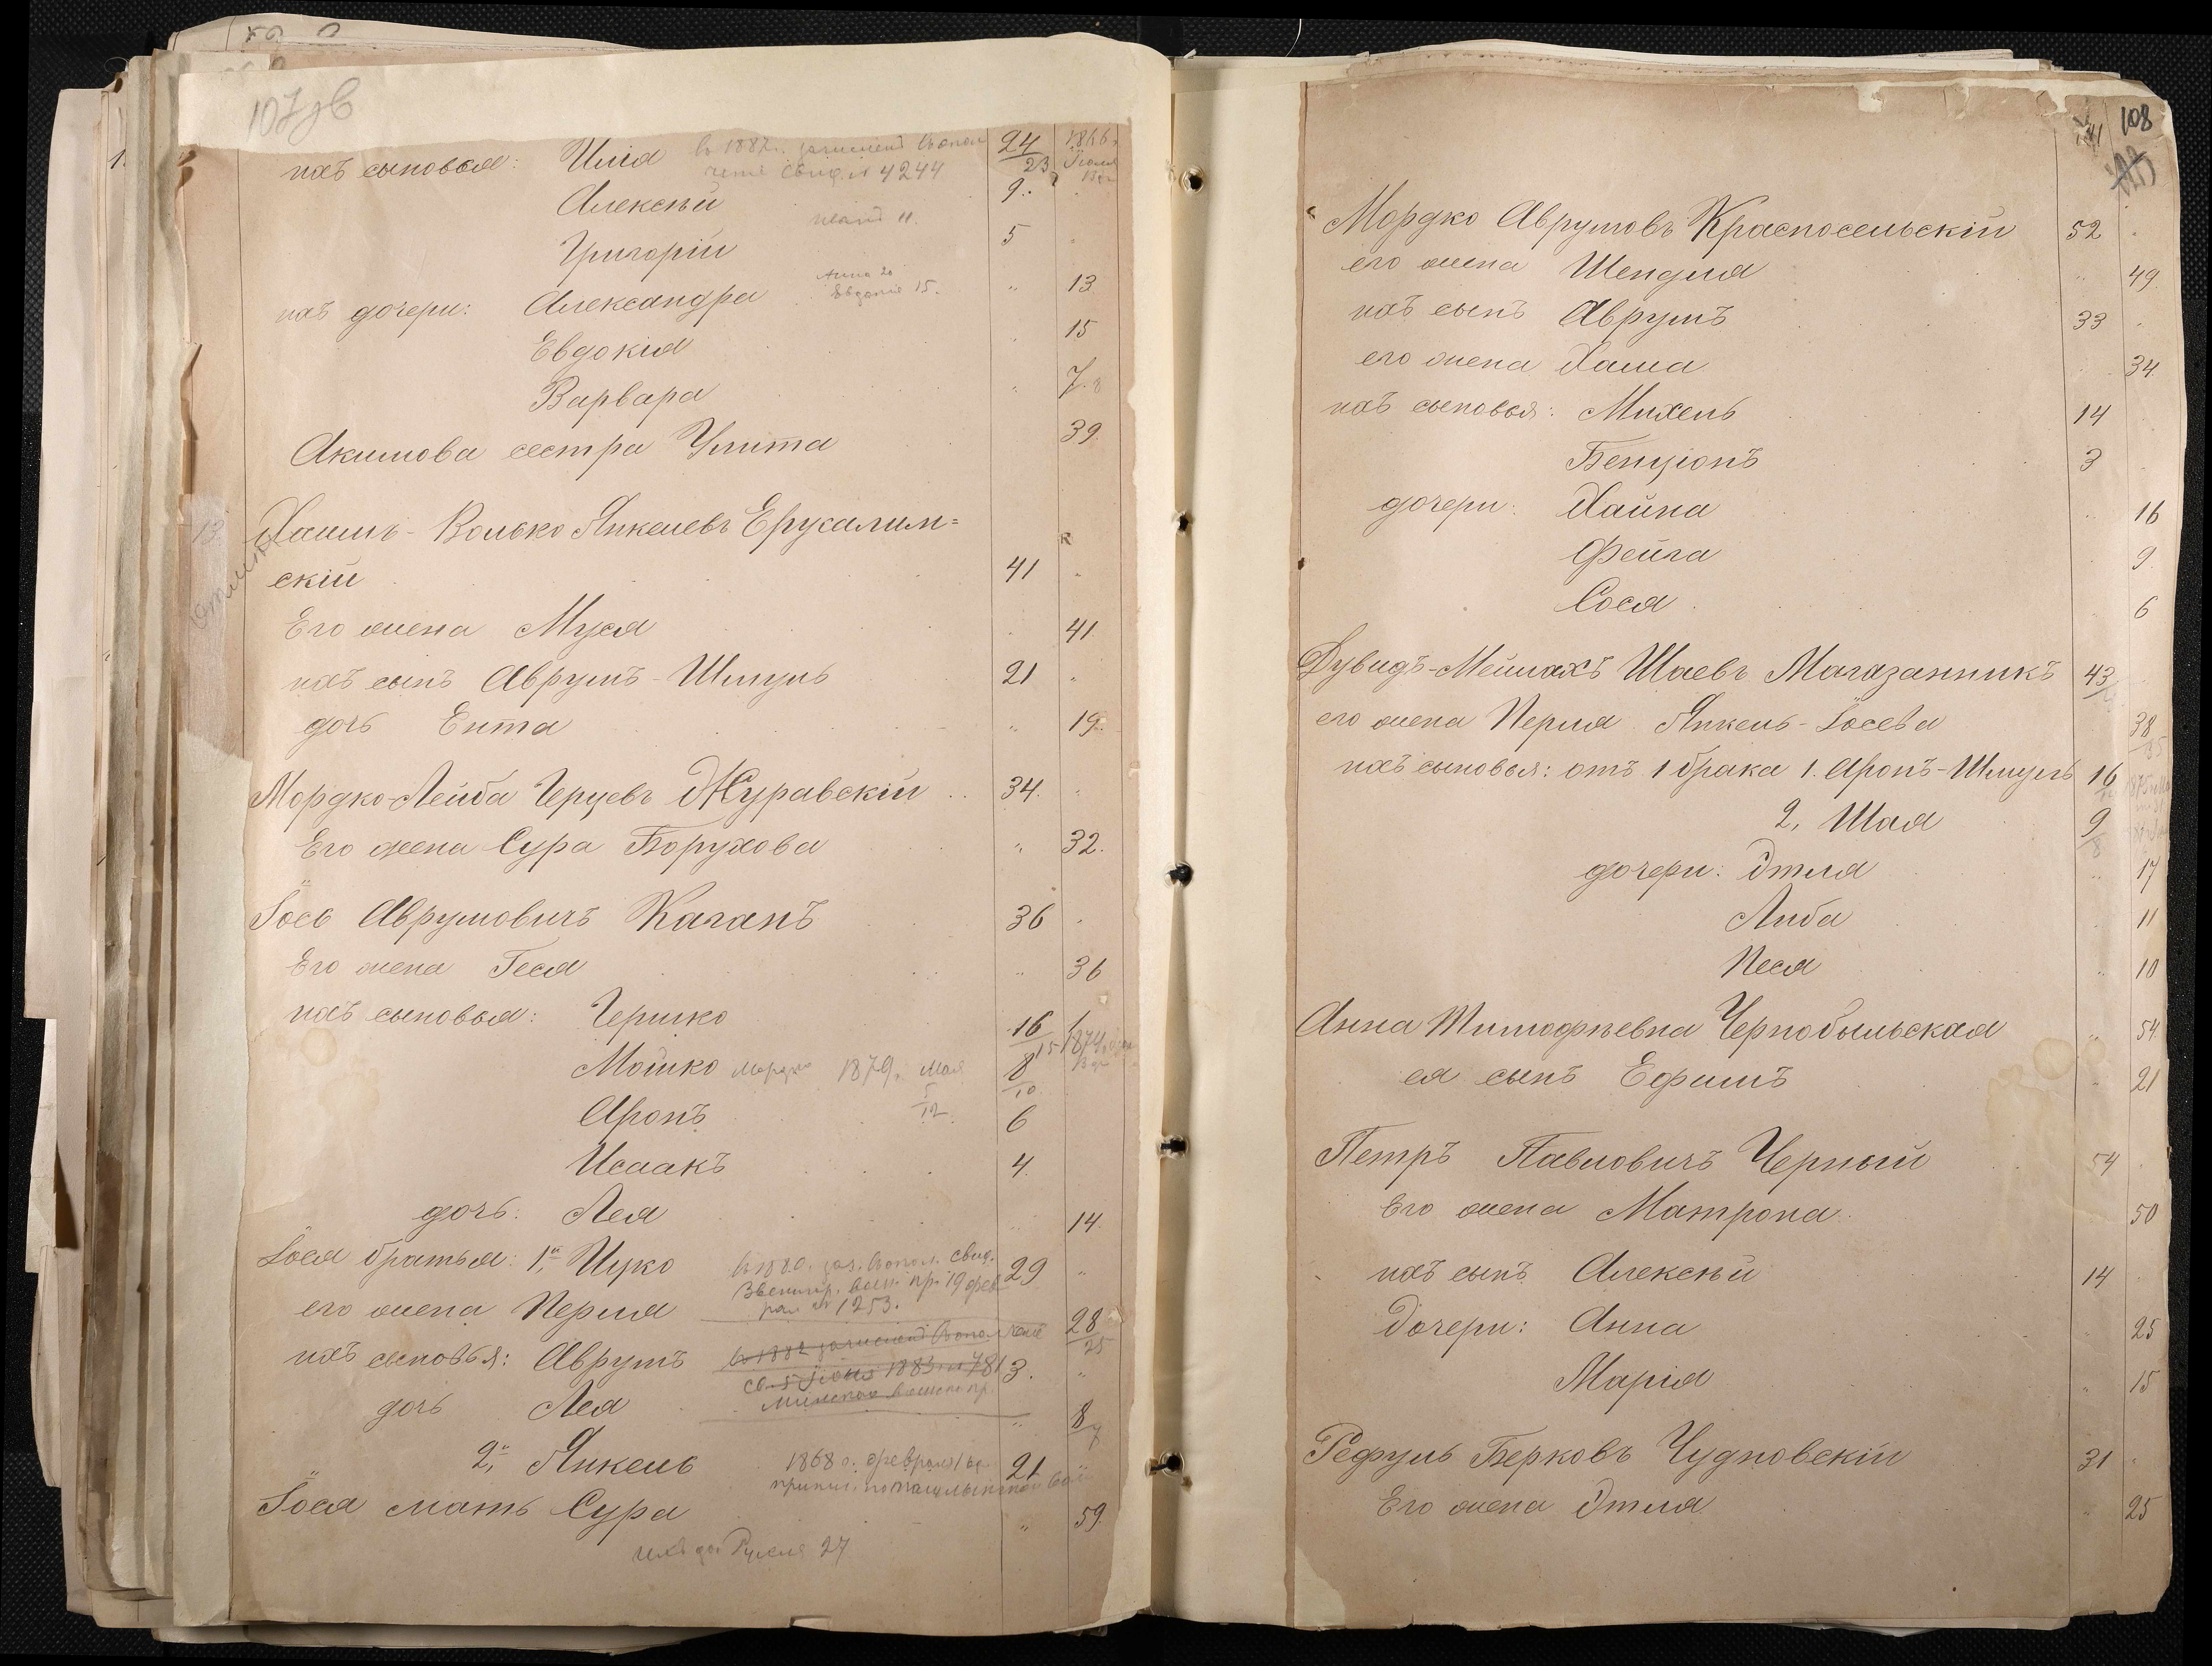 107 об
ихъ сыновья: Илія в 1882 г. зачислен в ополчение свид. № 4244 24/23 1866 Іюля
Алексѣй 9
Григорій 5
ихъ дочери: Александра Анна 20 Евдокія 15. " 13
Евдокія 15
Варвара " 7. 8
Акимова сестра Улита 39.
13 Хаимъ-Волько Янкелевъ Ерусалим=
скій 41 "
Его жена Муся 41
ихъ сынъ Аврумъ-Шмуль 21 "
дочь Ента " 19.
Мордко-Лейба Герцевъ Журавскій 34. "
Его жена Сура Борухова " 32.
Іось Аврумовичъ Каганъ 36 "
Его жена Геся " 36
ихъ сыновья: Гершко 16/15 1874
Мошко Мордко 1879. Мая 5/12 8/10
Аронъ 6
Исаакъ 4.
дочь: Лея 14.
Іося братья: 1й, Ицко в 1880. зач. в опол. свид. 29 "
Звениг. воин. пр. 19 февраля № 1253.
его жена Перля 28/25
ихъ сыновья: Аврумъ 3. "
дочь Лея " 8/7
2й, Янкель 1868 г. февраля 21
Іося мать Сура " 59.
27
108
Мордко Аврумовъ Красносельскій 52 "
его жена Шендля " 49.
ихъ сынъ Аврумъ 33 "
его жена Хаша 34
ихъ сыновья: Михель 14
Бенціонъ 3
дочери: Хайна 16
Фейга 9
Сося 6
Дувидъ-Меилахъ Шаевъ Магазанникъ 43
его жена Перля Янкель-Іосева 38/35
ихъ сыновья: отъ 1 брака 1. Аронъ-Шмуль 16
2, Шая 9/8
дочери: Этля " 17
Либа 11
Песя " 10
Анна Тимофѣевна Чернобыльская " 54.
ея сынъ Ефимъ " 21
Петръ Павловичъ Черный 54
Его жена Матрона 50
ихъ сынъ Алексѣй 14
Дочери: Анна " 25
Марія " 15
Рефуль Берковъ Чудновскій 31 "
Его жена Этля " 25